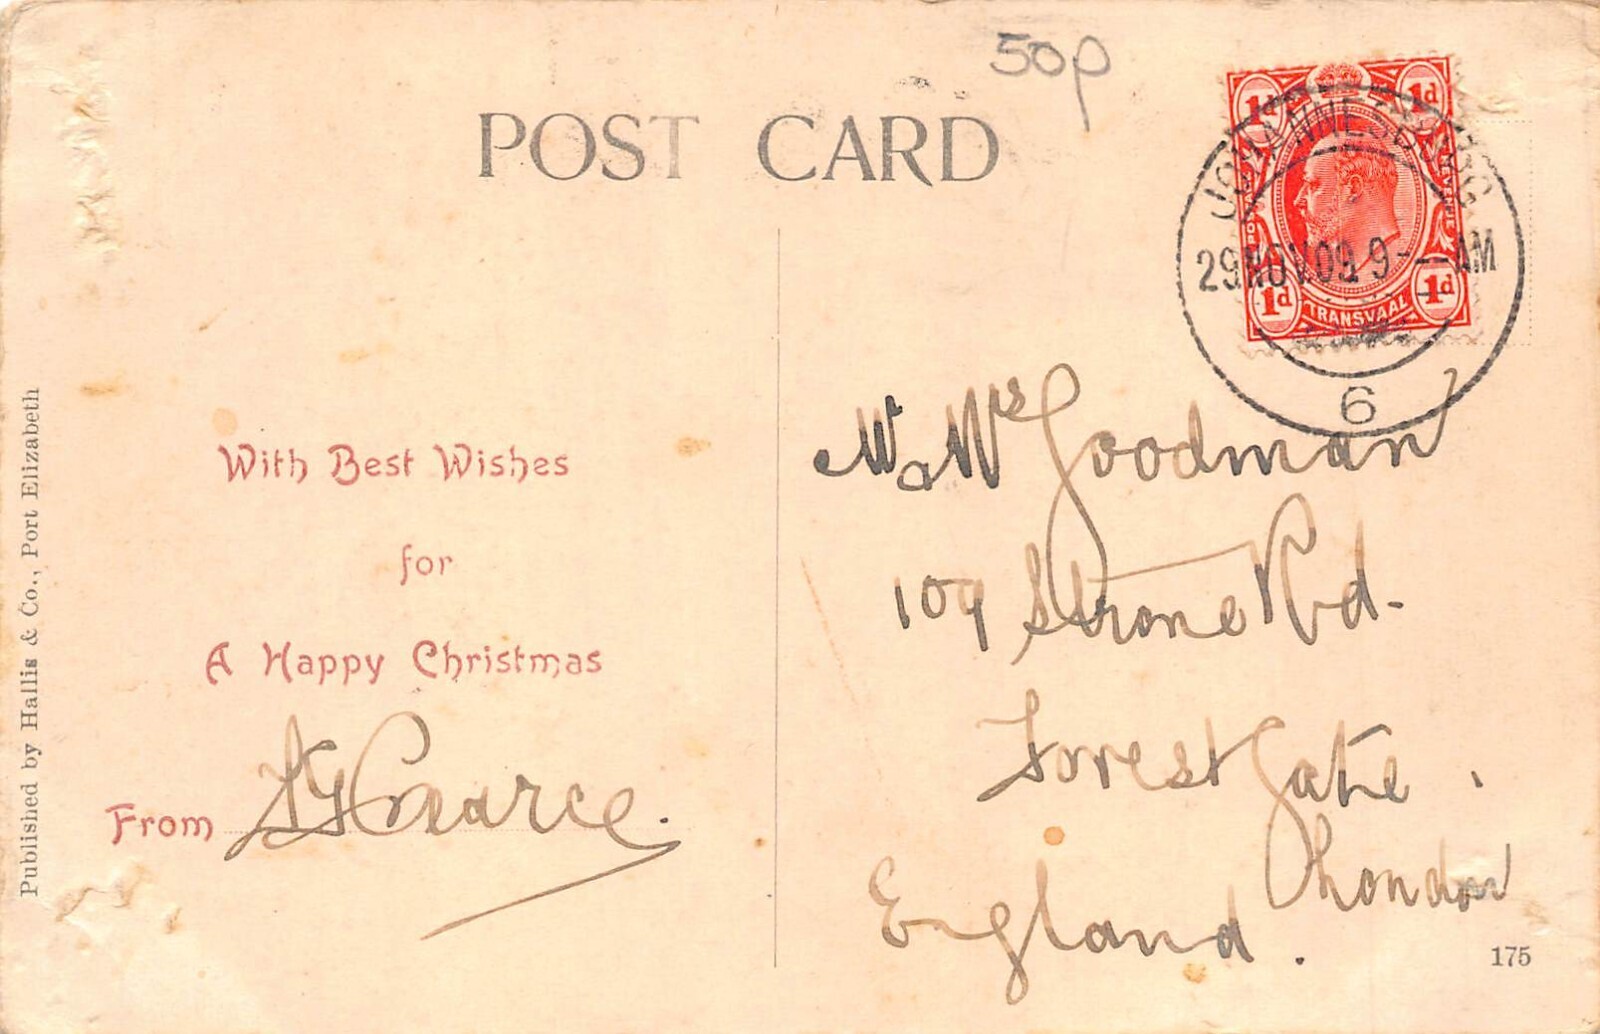 50p
POST CARD
1d 1d
TRANSVAAL
1d 1d
JOHANNESBURG
29 NOV 09 9 - AM
6
With Best Wishes
for
A Happy Christmas
From Pearce.
M & Mrs Goodman
109 Strone Rd.
Forest Gate.
London
England.
Published by Hallis & Co., Port Elizabeth
175